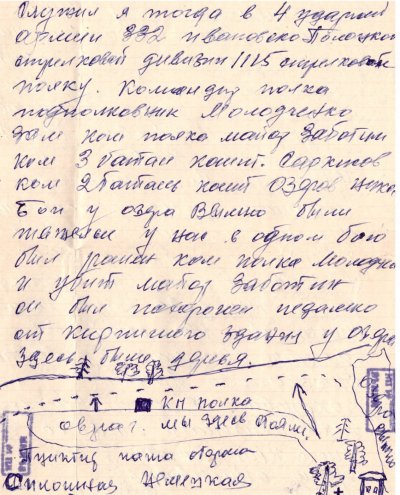 Служил я тогда в 4 ударной
армии 332 ивановско Полоцкой
стрелковой дивизии 1115 стрелковом
полку. Командир полка
подполковник Молодченко
зам ком полка майор Заботин
ком 3 батал капит. Саркисов
ком 2 батальо капит Оздров
Бои у озера были
тяжелые у нас в одном бою
был ранен ком полка Молодч
и убит майор Заботин
он был похоронен недалеко
от кирпичного здания у озера
здесь были деревья.
КП полка
овраг. мы здесь стояли.
пунктир наша оборона
Сплошная Немецкая